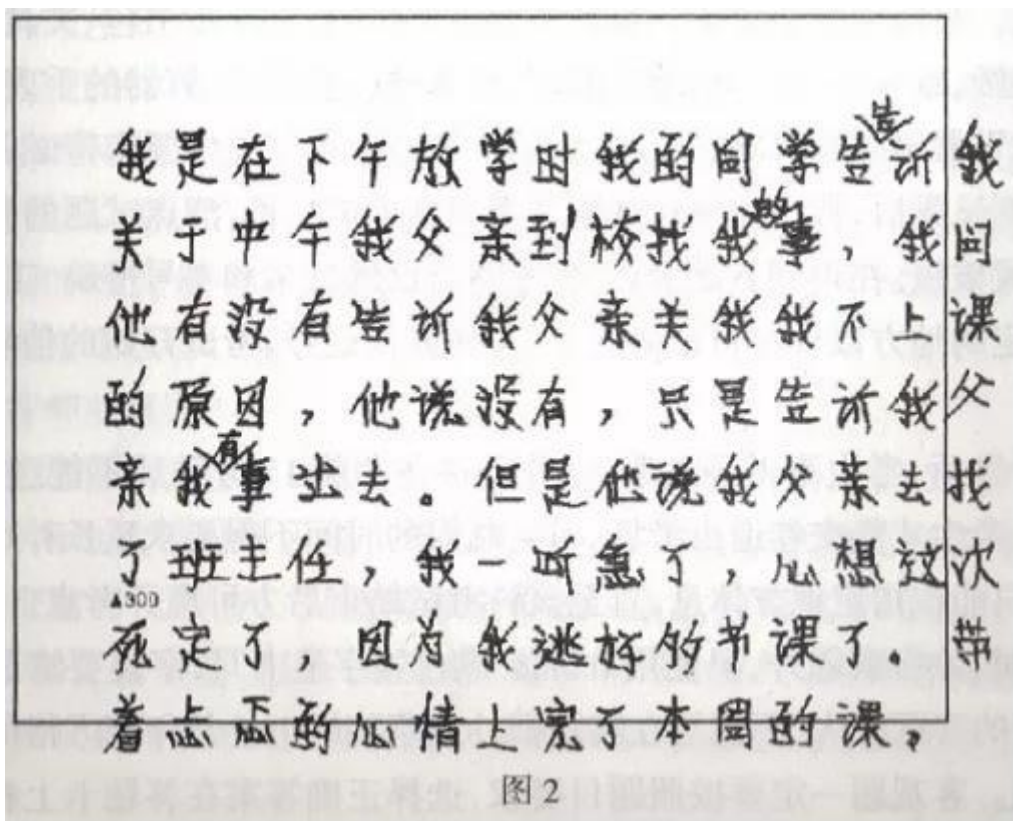 我是在下午放学时我的同学告诉我
关于中午我父亲到校找我的事，我问
他有没有告诉我父亲关我我不上课
的原因，他说没有，只是告诉我父
亲我有事出去。但是他说我父亲去找
了班主任，我一听急了，心想这次
▲300
死定了，因为我逃节课了。带
着忐忑的心情上完了本周的课，
图2